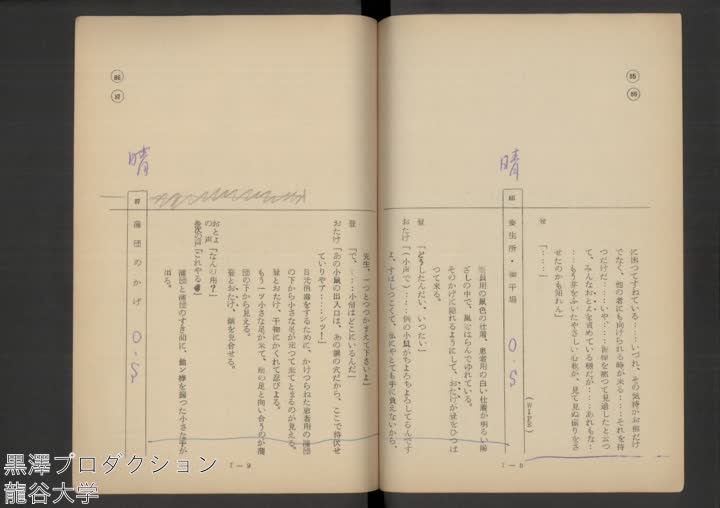 に困つてすねている……いづれ、その気持がお前だけ
でなく、他の者にも向けられる時が来る……それを待
つだけだ……いや……
て、みんなおとよを責めている様だが……あれもな…
…もう芽をふいたやさしい心根が、見て見ぬ振りをさ
せたのかも知れん」
登「……」
(WIPE)
晴
86 養生所・物干場 O.S
医員用の鼠色の仕着、患者用の白い仕着が明るい陽
ざしの中で、風にはらんでゆれている。
そのかげに隠れるようにして、おたけが登をひつぱ
つて来る。
登「どうしたんだい、いつたい」
おたけ「(小声で)……例の小鼠がちよろちよろしてるんです
よ、すばしつこくて、私にやとても手に負えないから、
7—8
先生、一つとつつかまえて下さいよ」
登「で、……小僧はどこにいるんだ」
おたけ「あの小鼠の出入口は、あの塀の穴だから、ここで待伏せ
ていりやア……シツ!」
日光消毒をするために、かけつらねた患者用の蒲団
の下から小さな足が出つて来てとまるのが見える。
登とおたけ、干物にかくれて忍びよる。
もう一ツ小さな足が来て、始の足と向い合うのが蒲
団の下から見える。
登とおたけ、顔を見合せる。
おとよの声「なんの用?」
長次の声「これやる」
晴
87 蒲団のかげ O.S
蒲団と蒲団のすき間に、飴ン棒を握つた小さな手が
出る。
7—9
黒澤プロダクション
龍谷大学